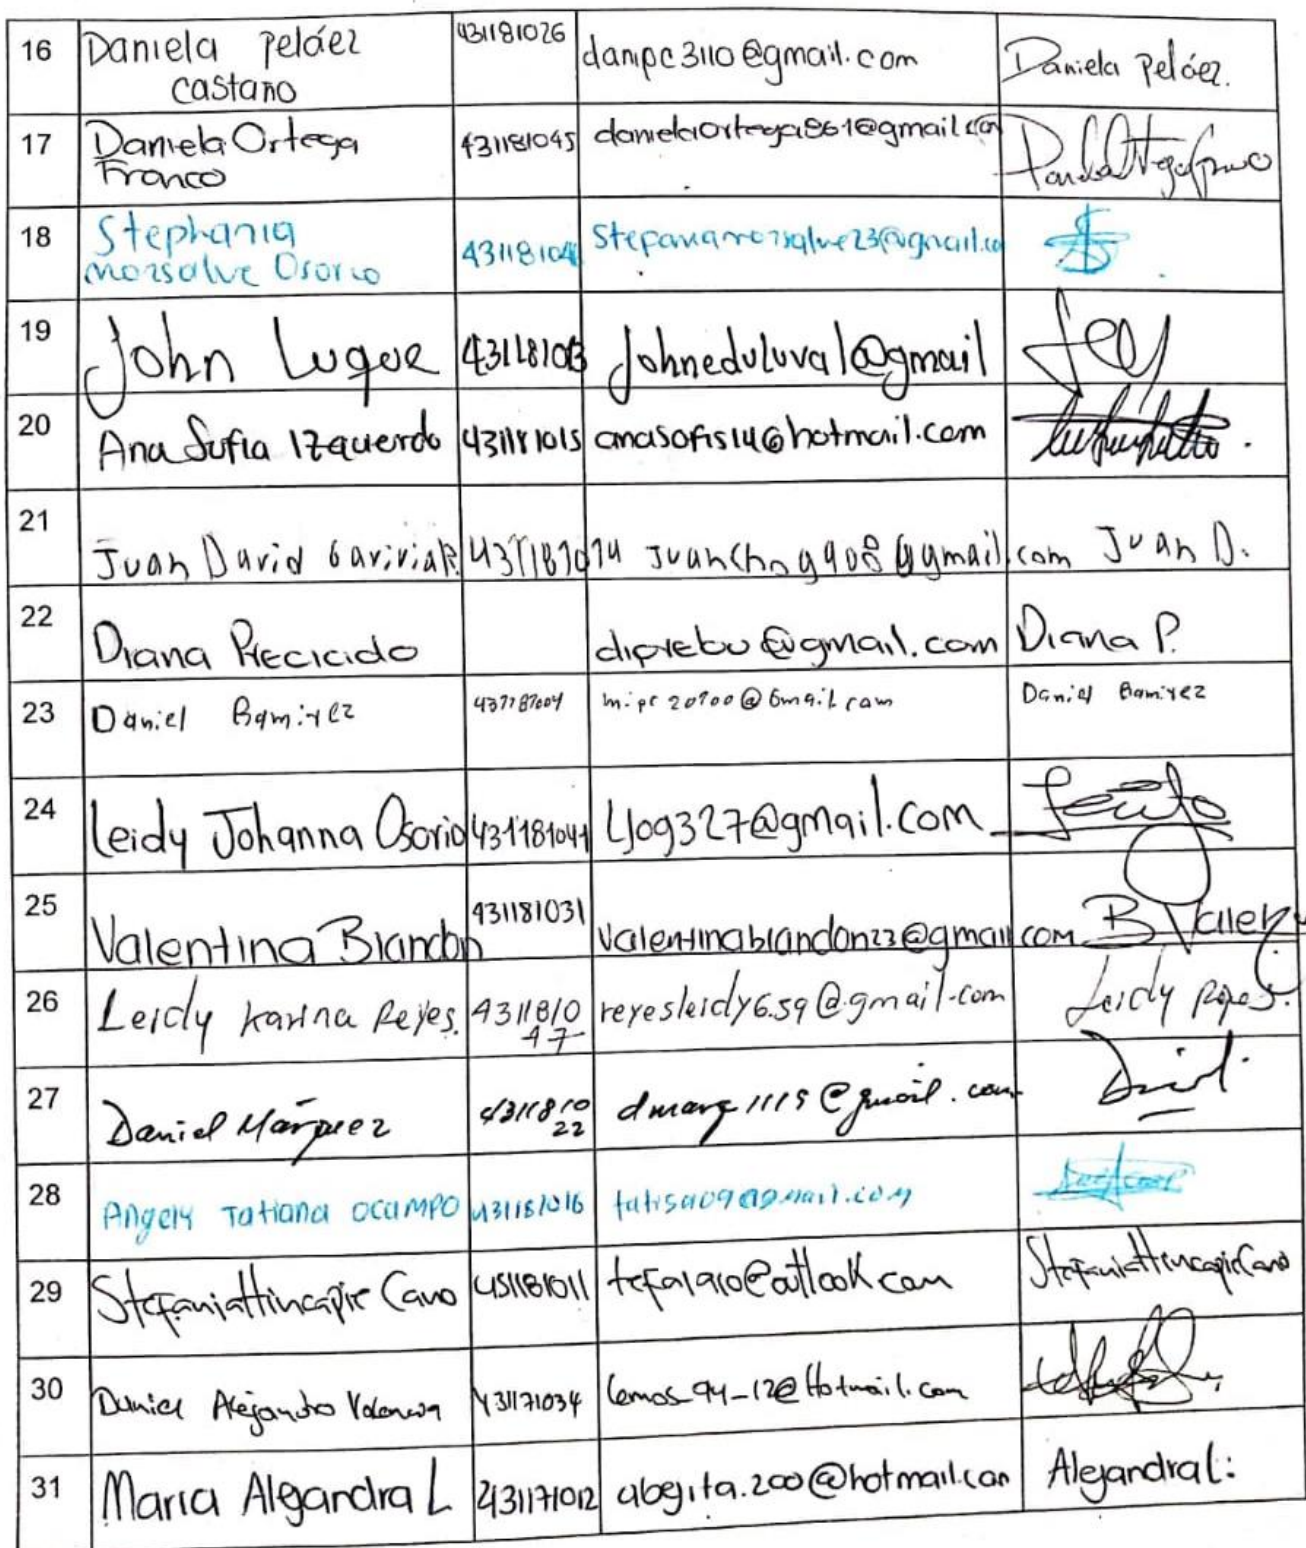 16 Daniela Peláez 431181026 danipc3110@gmail.com Daniela Peláez.
castaño
17 Daniela Ortega 431181045 danielaortega861@gmail.com
Franco
18 Stephania
Monsalve Osorio
19 John Luque johneduluval@gmail
20 Ana Sofia Izquierdo 431181015 anasofis14@hotmail.com
21 Juan David 431181014 Juan D.
22 Diana Preciado diprebu@gmail.com Diana P.
23 Daniel Ramirez 431181004 Daniel Ramirez
24 Leidy Johanna Osorio 431181041 Ljog327@gmail.com
25 Valentina Blandon 431181031 Valentinablandon23@gmail.com B Valery
26 Leidy Karina Reyes. 4311810 reyesleidy6.59@gmail.com Leidy Reyes.
47
27 Daniel Márquez 4311810 dmarq1115@gmail.com Daniel
22
28 Angely Tatiana Ocampo 431181016
29 Stefania Hincapie Cano 431181011 Stefania Hincapie Cano
30 Daniel Alejandro Valencia 431171034 lemos_94-12@Hotmail.com
31 Maria Alejandra L 431171012 abegita.200@hotmail.com Alejandra L.